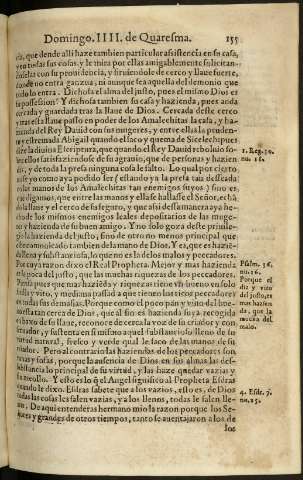 Domingo. IIII. de Quaresma. 155
que dende alli haze tambien particular asistencia en su casa,
y en todas sus cosas, y le mira por ellas amigablemente
con su prouidencia, y siruiendole de cerco y llaue fuerte,
donde no entra ganzua, ni aunque sea aquella del demonio que
todo lo entra. Dichosa el alma del justo, pues el mismo Dios es
su possession! Y dichosa tambien su casa y hazienda, pues anda
cercada y guardada tras la llaue de Dios. Cercada deste cerco
y tras esta llaue passo en poder de los Amalechitas la casa, y ha-
zienda del Rey Dauid con sus mugeres, y entre ellas la pruden-
te y estremada Abigail quando el saco y quema de Sicelech: pues
dize la diuina Escriptura, que quando el Rey Dauid
satisfaziendose de su agrauio, que de personas y hazien
da, y de toda la presa ninguna cosa le falto. Lo qual por cierto
yo como aya podido ser (estando ya la presa tan desseada
en las manos de los Amalechitas tan enemigos suyos) sino es
que digamos, que entre las manos y ellas se hallasse el Señor, echã
do la llaue y el cerco de su seguro, y que assi dessa manera aya he-
cho de los mismos enemigos leales depositarios de las muge-
res y hazienda de su buen amigo. Y no solo goza deste priuile-
gio la hazienda del justo, sino de otro no menos principal que
comunicado tambien de la mano de Dios. Y es, que es hazië-
da llena y substanciosa, lo que no es la de los malos y peccadores.
Por cuya razon dixo el Real Propheta. Mejor y mas hazienda
es la poca del justo, que las muchas riquezas de los peccadores.
Pensà pues que mas hazienda y riquezas tiene vn bueno en solo
su dia y vito, y mediana passada que tienen los ricos peccadores
en todas sus demasias. Porque como el poco pan y vito del bue-
no esta tan cerca de Dios, que al fin es hazienda suya recogida
debaxo de su llaue, reconoce de cerca la voz de su criador y con
seruador, y sustenta en si mismo aquel substancioso lleno de su
virtud natural, fresco y verde qual le saco de las manos de su
criador. Pero al contrario las haziendas de los peccadores son
vazias y fofas, porque la ausencia de Dios en sus almas las des-
substancia lo principal de su virtud, y las haze quedar vazias y
sin meollo. Y esto es lo que el Angel significò al Propheta Esdras
quando le dixo. Esdras sabete que a los vazios, esto es, de Dios
todas las cosas les salen vazias, y a los llenos, todas le salen lle-
nas. De aqui entenderas hermano mio la razon porque los Se-
ñores y grandes de otros tiempos, tanto se auentajaron a los de
los
1. Reg. 30.
nu. 18.
Psalm. 36.
nu. 16.
Porque el
dia y vito
del justo, es
mas hazien
da, que la
mucha del
malo.
4. Esdr. 7.
nu. 25.